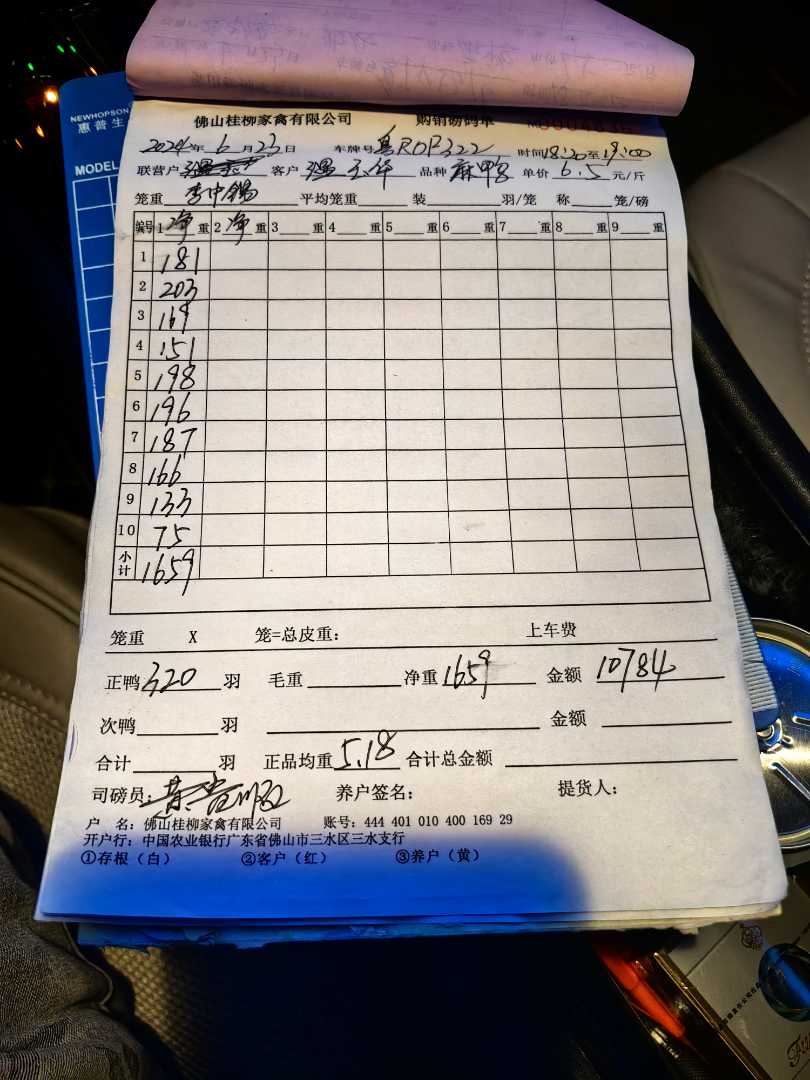 NEWHOPSON
惠普生
MODEL
佛山桂柳家禽有限公司 购销磅码单
2024年6月23日 车牌号粤R0P322 时间18:20至19:00
联营户 客户 玉华 品种麻鸭 单价6.5元/斤
李中锡
笼重 平均笼重 装 羽/笼 称 笼/磅
编号 1净重 2净重 3 重 4 重 5 重 6 重 7 重 8 重 9 重
1 181
2 203
3 169
4 151
5 198
6 196
7 187
8 166
9 133
10 75
小计 1659
笼重 X 笼=总皮重: 上车费
正鸭320羽 毛重 净重1659 金额10784
次鸭 羽 金额
合计 羽 正品均重5.18 合计总金额
司磅员: 养户签名: 提货人:
户 名: 佛山桂柳家禽有限公司 账号: 444 401 010 400 169 29
开户行: 中国农业银行广东省佛山市三水区三水支行
①存根（白） ②客户（红） ③养户（黄）